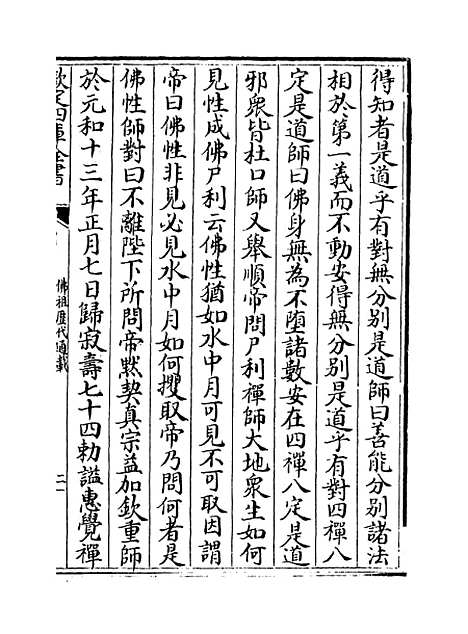 得知者是道乎有對無分别是道師曰善能分别諸法
相於第一義而不動安得無分别是道乎有對四禪八
定是道師曰佛身無為不墮諸數安在四禪八定是道
邪衆皆杜口師又舉順帝問尸利禪師大地衆生如何
見性成佛尸利云佛性猶如水中月可見不可取因謂
帝曰佛性非見必見水中月如何攫取帝乃問何者是
佛性師對曰不離陛下所問帝黙契真宗益加欽重師
於元和十三年正月七日歸寂壽七十四勅謚惠覺禪
欽定四庫全書
佛祖歷代通載
二一